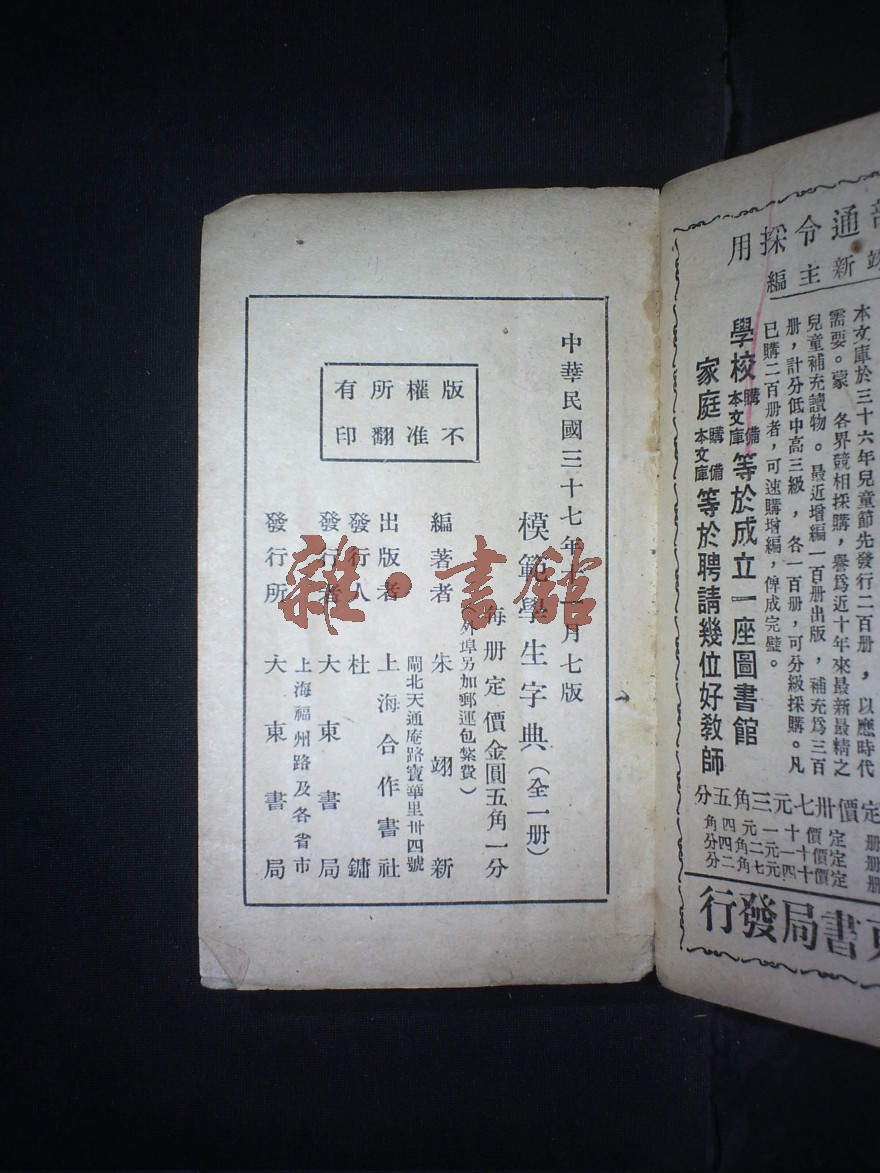 中華民國三十七年十一月七版
模範學生字典（全一册）
每册定價金圓五角一分
（外埠另加郵運包紮費）
編著者 朱翊新
閘北天通庵路寶華里卅四號
出版者 上海合作書社
發行人 杜鏞
發行者 大東書局
上海福州路及各省市
發行所 大東書局
版權所有
不准翻印
雜·書館
通令採用
新主編
本文庫於三十六年兒童節先發行二百册，以應時代
需要。蒙 各界競相採購，譽爲近十年來最新最精之
兒童補充讀物。最近增編一百册出版，補充爲三百
册，計分低中高三級，各一百册，可分級採購。凡
已購二百册者，可速購增編，俾成完璧。
學校購備本文庫等於成立一座圖書館
家庭購備本文庫等於聘請幾位好教師
定價卅七元三角五分
册定價十一元四角四分
册定價十一元二角四分
册定價十四元七角二分
東書局發行